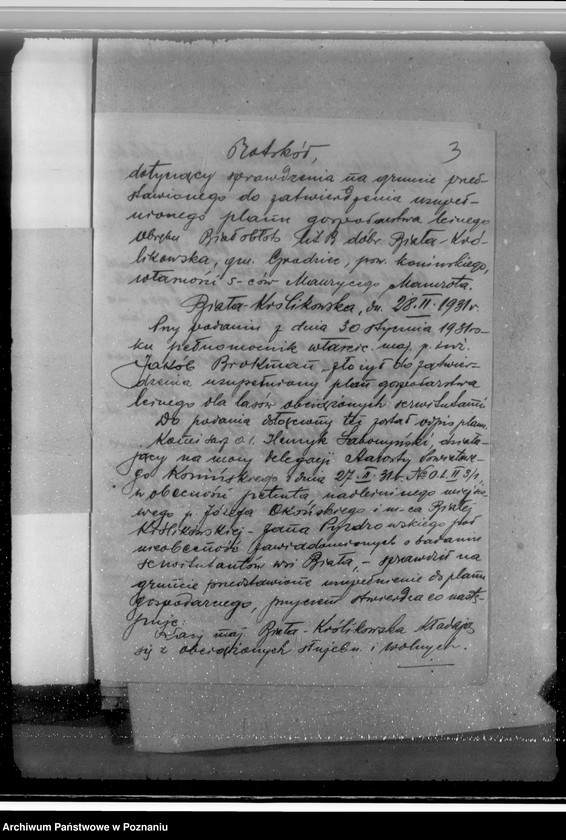 Protokół,
3
dotyczący sprawdzenia na gruncie przed-
stawionego do zatwierdzenia uzupeł-
nionego planu gospodarstwa leśnego
obrębu Białobłot lit B dóbr Biała-Kró-
likowska, gm. Grodziec, pow. konińskiego,
własności s-ców Maurycego Mamrota.
Biała-Królikowska, dn. 28.II.1931 r.
Przy podaniu z dnia 30 stycznia 1931 ro-
ku pełnomocnik właścic. maj. p. inż.
Jakób Brokman złożył do zatwier-
dzenia uzupełniony plan gospodarstwa
leśnego dla lasów obciążonych serwitutami
Do podania dołączony też został odpis planu.
Komisarz o. l. Henryk działa-
jący na mocy delegacji Starosty Powiatowe-
go Konińskiego z dnia 27.II.31 r. № O.L.II
w obecności petenta, nadleśniczego miejsco-
wego p. Józefa Okońskiego i m-ca Białej
Królikowskiej - Jana Pyzdrowskiego pod
nieobecność zawiadomionych o badaniu
serwitutantów wsi Biała, - sprawdził na
gruncie przedstawione uzupełnienie do planu
gospodarczego, przyczem stwierdza co nastę-
puje:
Lasy maj. Biała-Królikowska składają
się z obciążonych służebn. i wolnych.
Archiwum Państwowe w Poznaniu